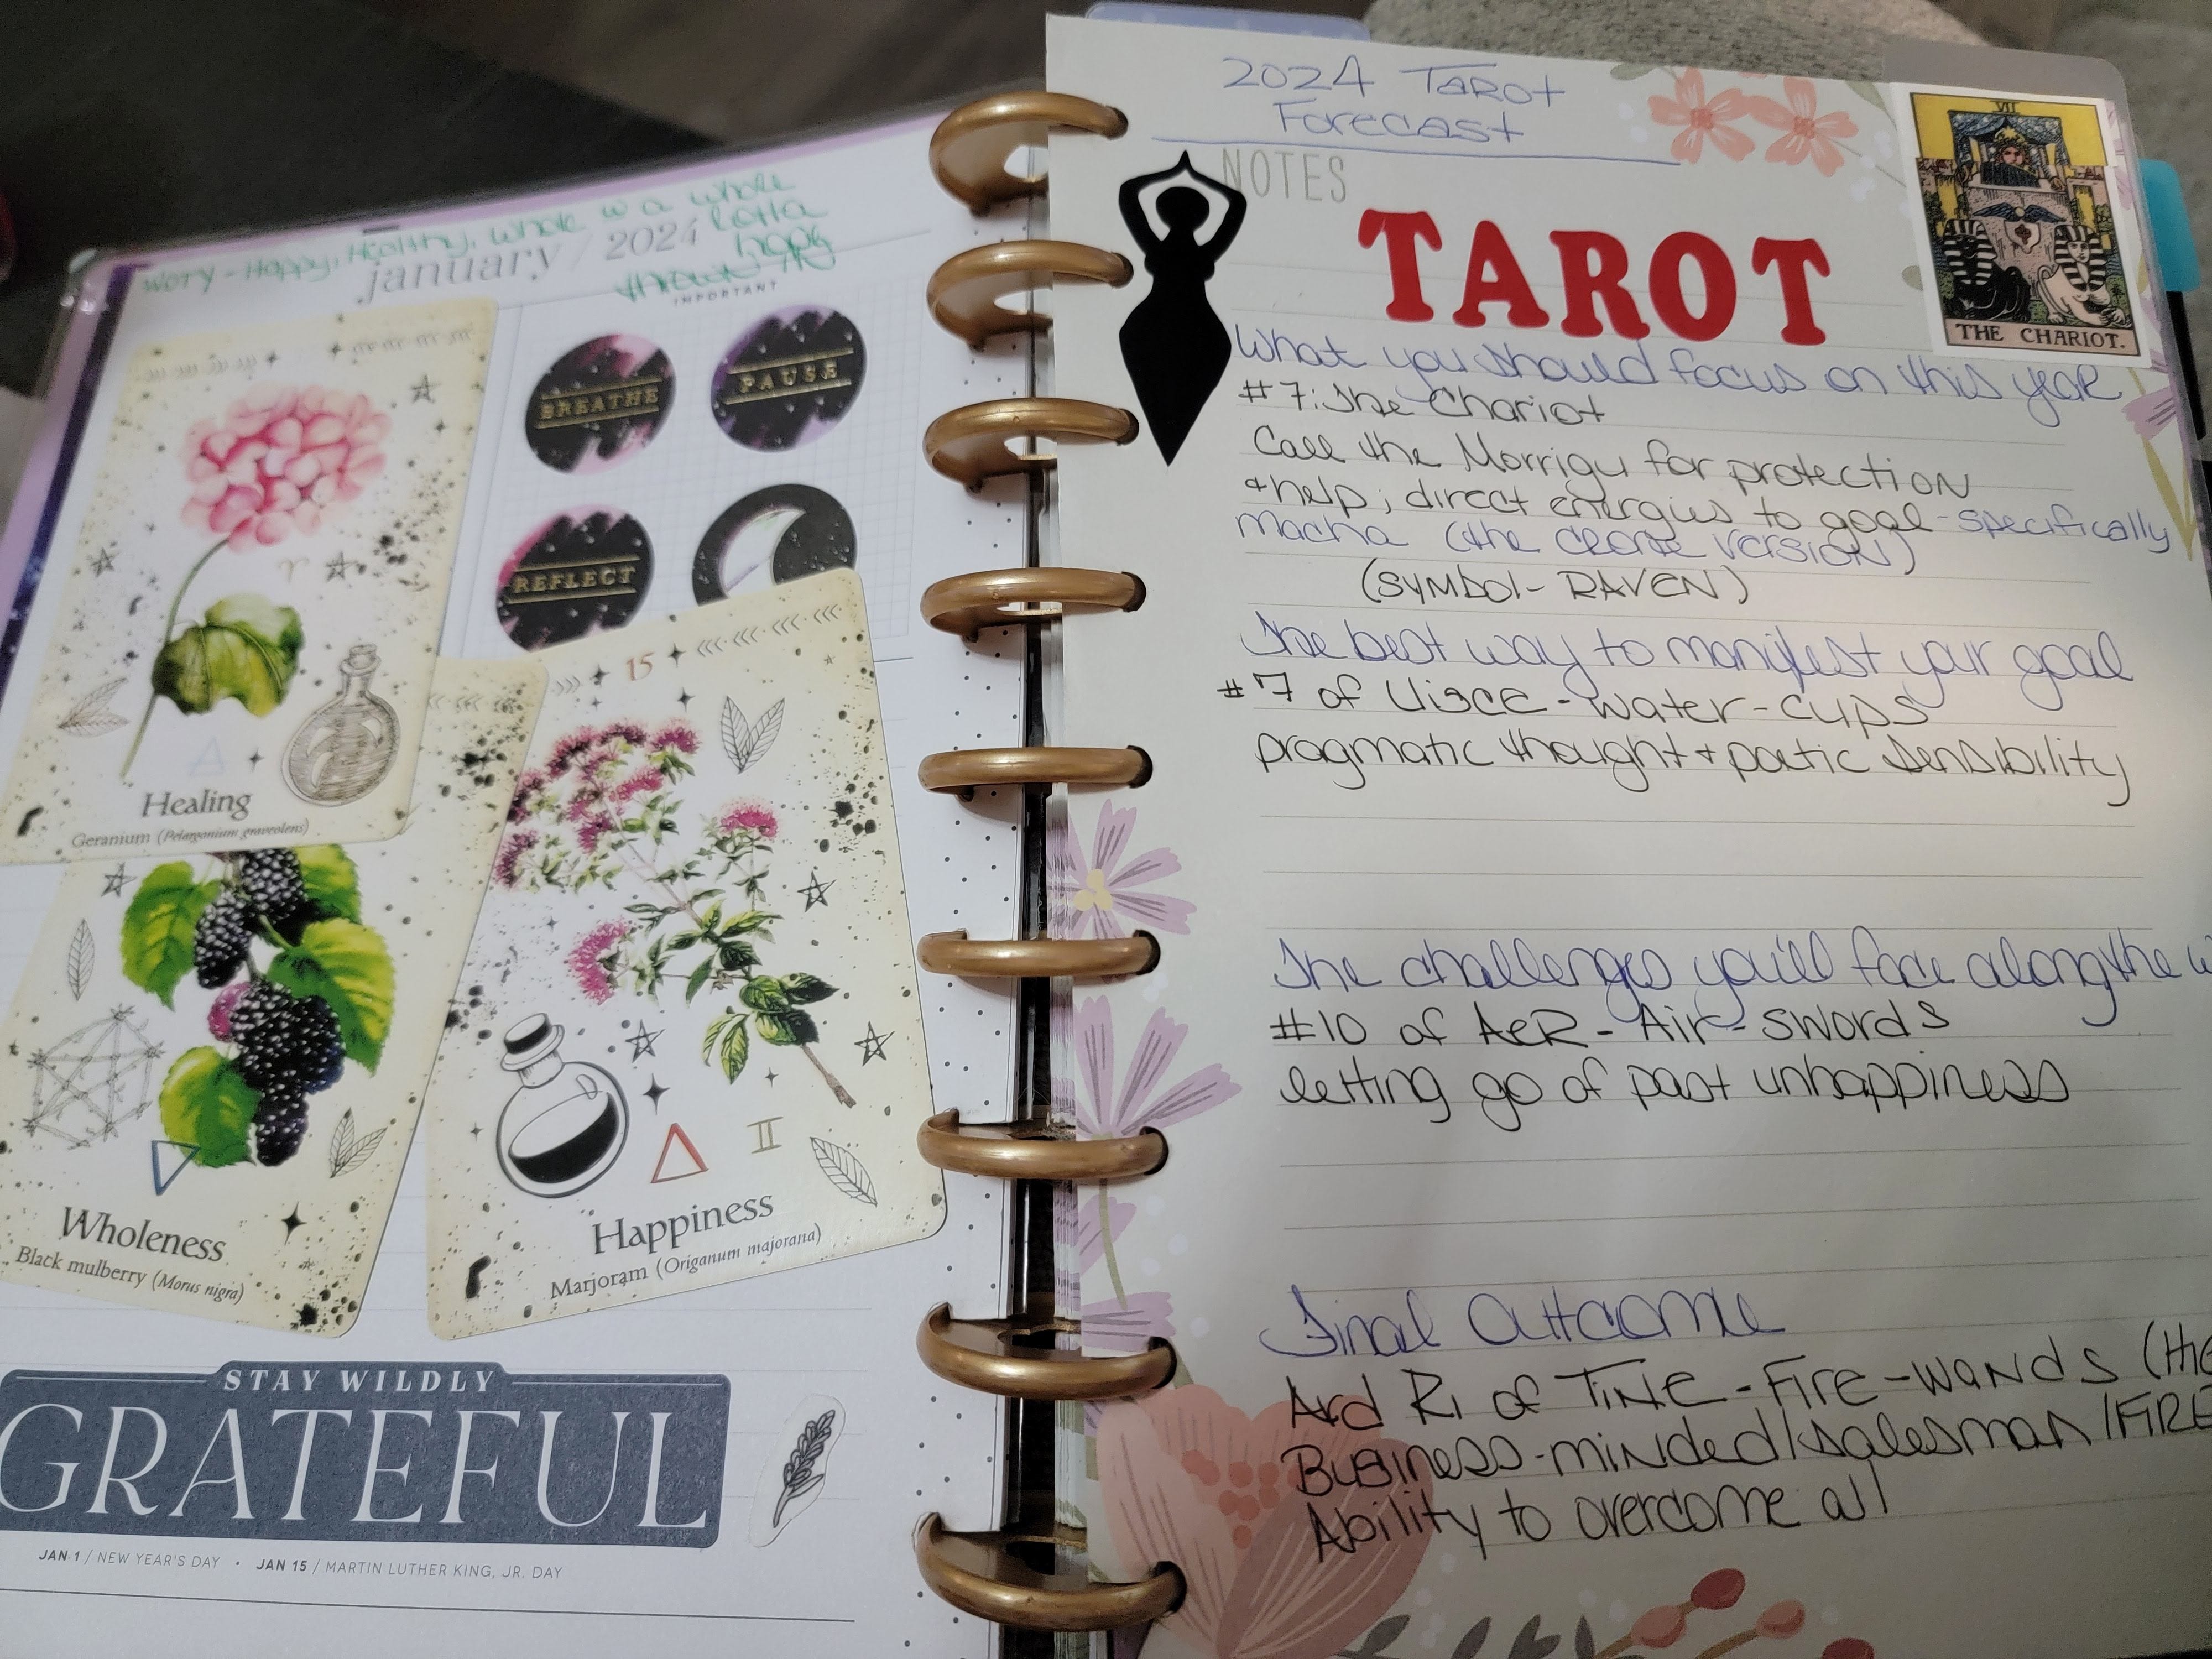 Happy, Healthy, Whole w a whole
lotta
hope
january / 2024
IMPORTANT
BREATHE
PAUSE
REFLECT
Healing
Geranium (Pelargonium graveolens)
15
II
Wholeness
Black mulberry (Morus nigra)
Happiness
Marjoram (Origanum majorana)
STAY WILDLY
GRATEFUL
JAN 1 / NEW YEAR'S DAY • JAN 15 / MARTIN LUTHER KING, JR. DAY
2024 Tarot
Forecast
NOTES
TAROT
VII
THE CHARIOT.
What you should focus on this year
#7: The Chariot
Call the Morrigu for protection
+ help; direct energies to goal - specifically
Macha (the crone version)
(symbol - RAVEN)
The best way to manifest your goal
#7 of UisCE - water - cups
pragmatic thought + poetic sensibility
The challenges you'll face along the w
#10 of AeR - Air - swords
letting go of past unhappiness
Final Outcome
Ard Ri of TiNE - FIRE - wands (HiG
Business-minded/salesman/FIRE
Ability to overcome all